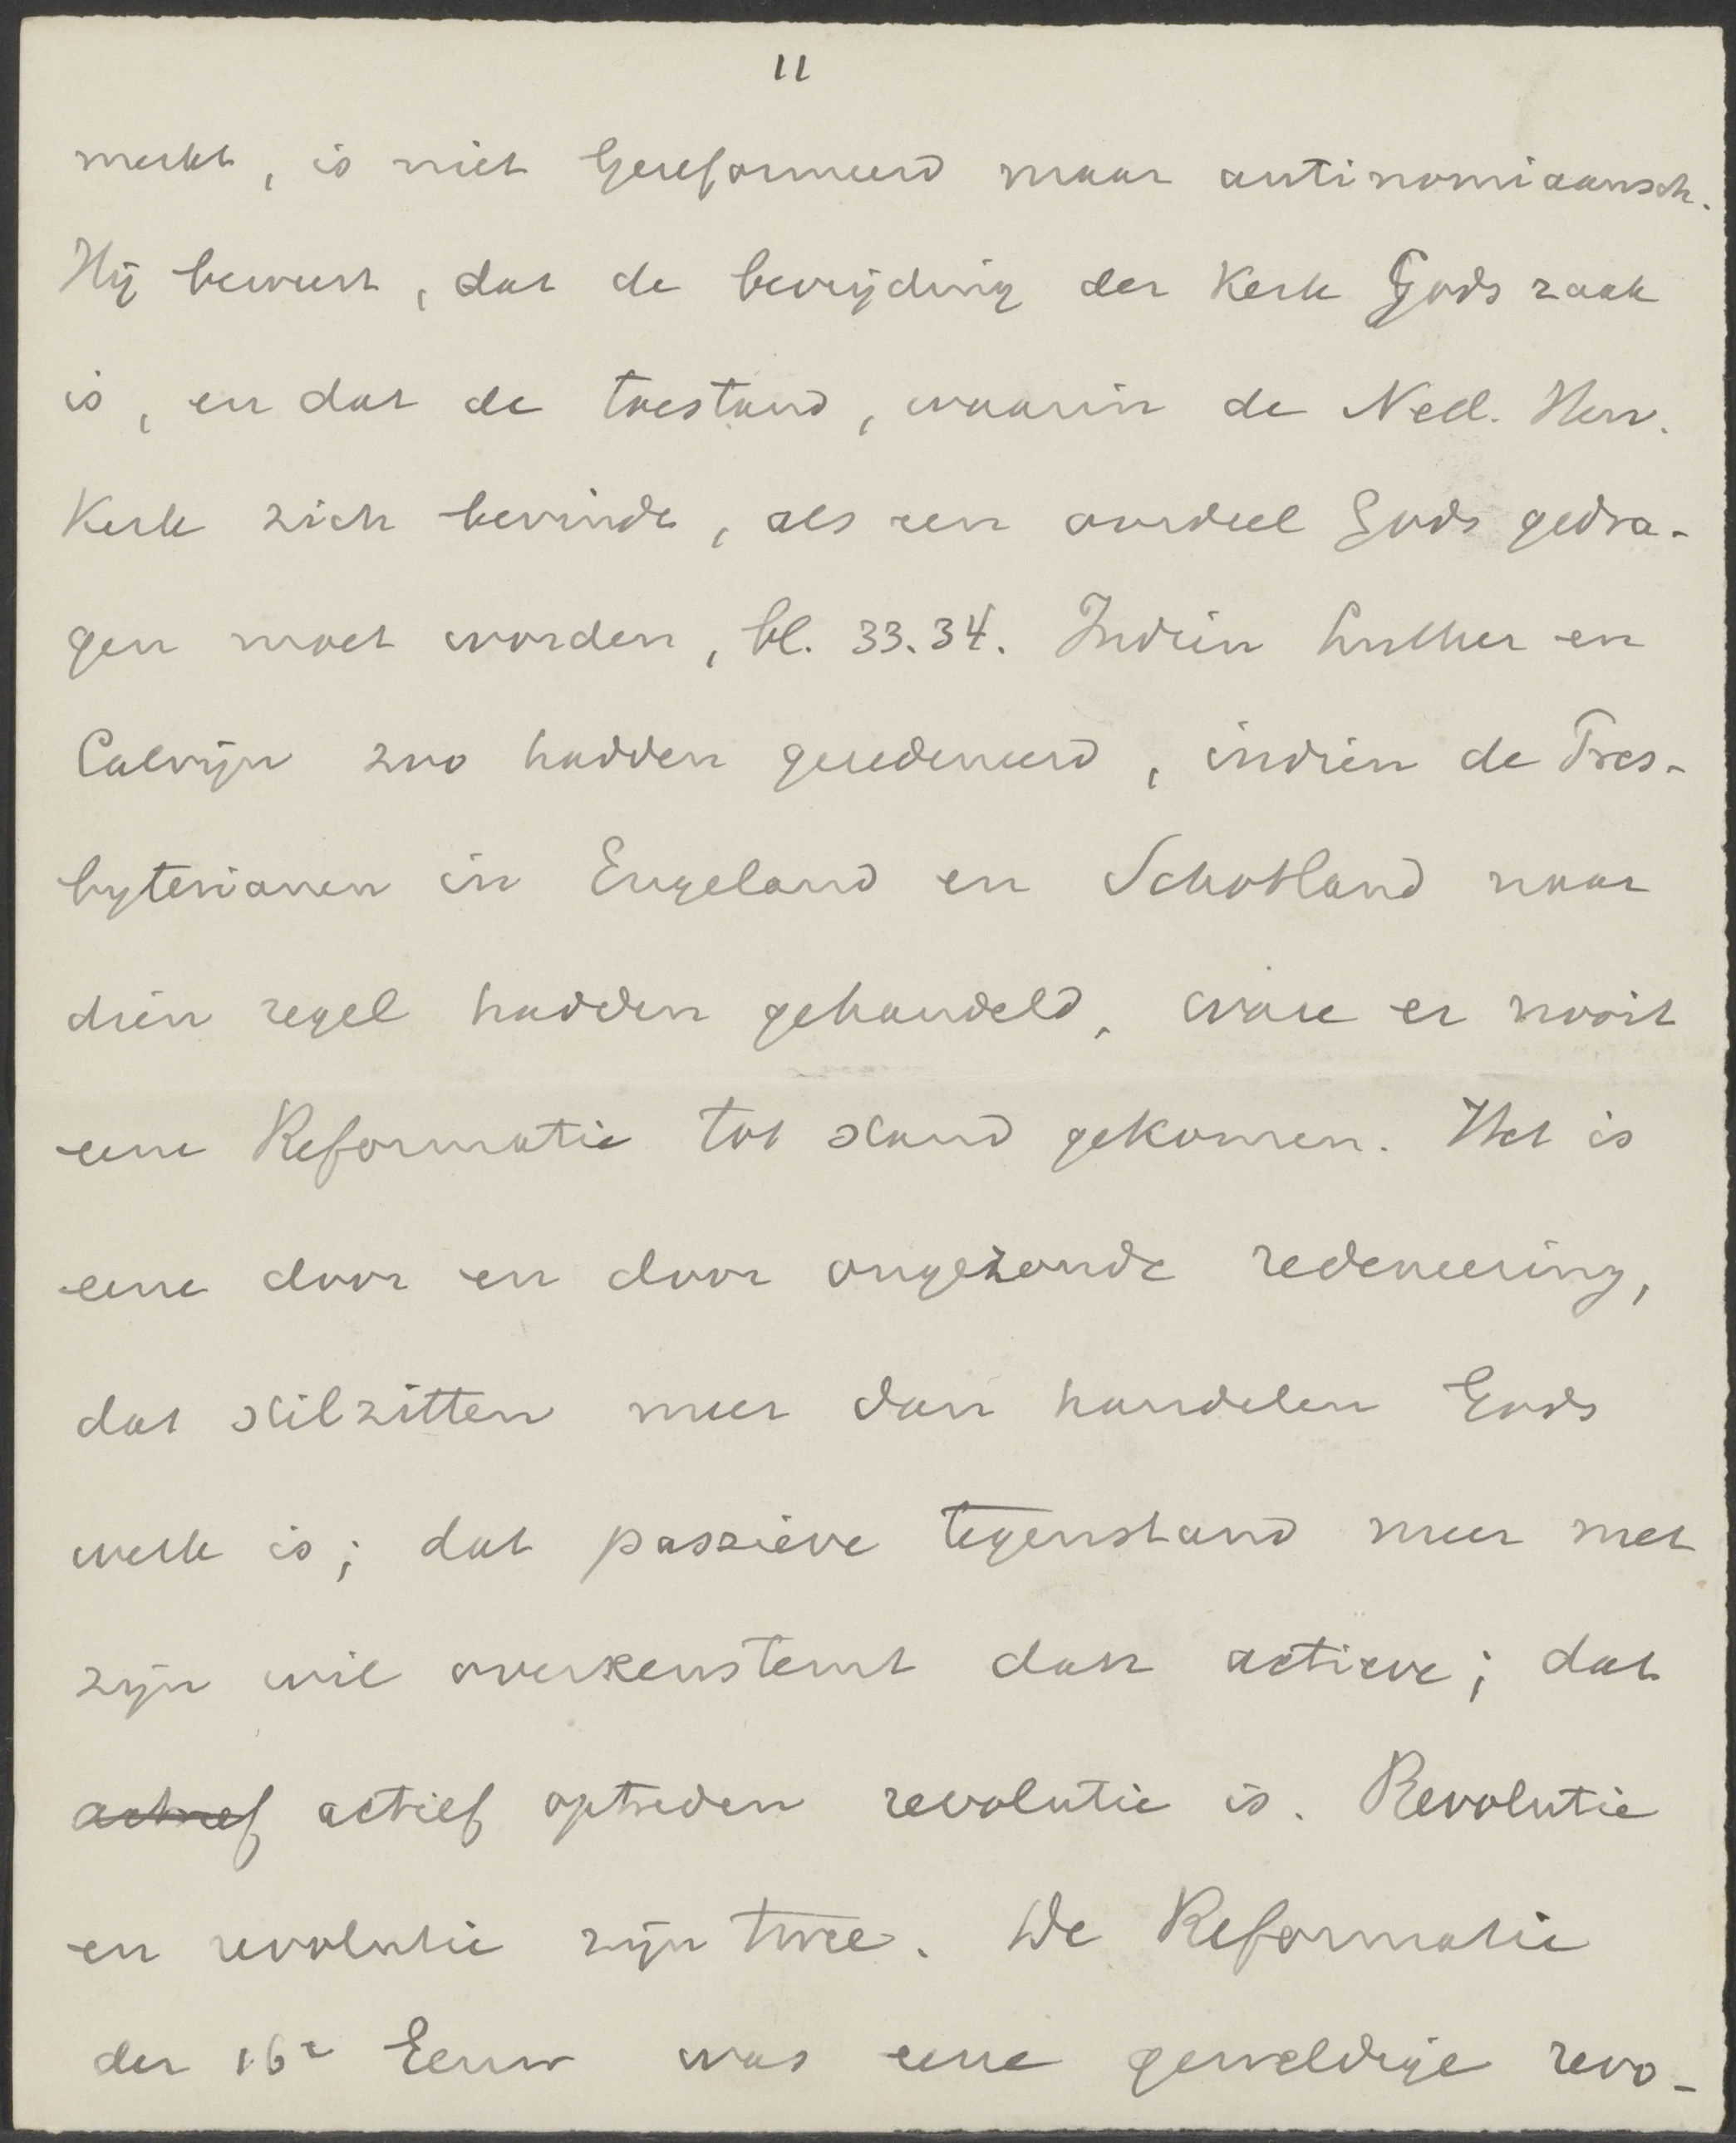 11
merkt, is niet Gereformeerd maar antinomiaansch.
Hij beweert, dat de bevrijding der Kerk Gods zaak
is, en dat de toestand, waarin de Ned. Herv.
Kerk zich bevindt, als een oordeel Gods gedra-
gen moet worden, bl. 33.34. Indien Luther en
Calvijn zoo hadden geredeneerd, indien de Pres-
byterianen in Engeland en Schotland naar
dien regel hadden gehandeld, ware er nooit
eene Reformatie tot stand gekomen. Het is
eene door en door ongezonde redeneering,
dat stilzitten meer dan handelen Gods
werk is; dat passieve tegenstand meer met
zijn wil overeenstemt dan actieve; dat
actief actief optreden revolutie is. Revolutie
en revolutie zijn twee. De Reformatie
der 16e Eeuw was eene geweldige revo-